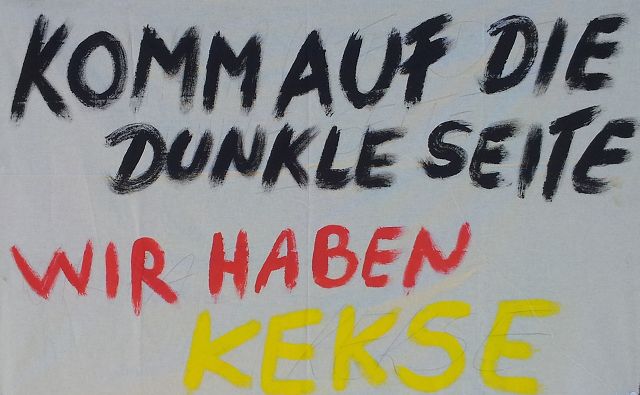 KOMM AUF DIE
DUNKLE SEITE
WIR HABEN
KEKSE